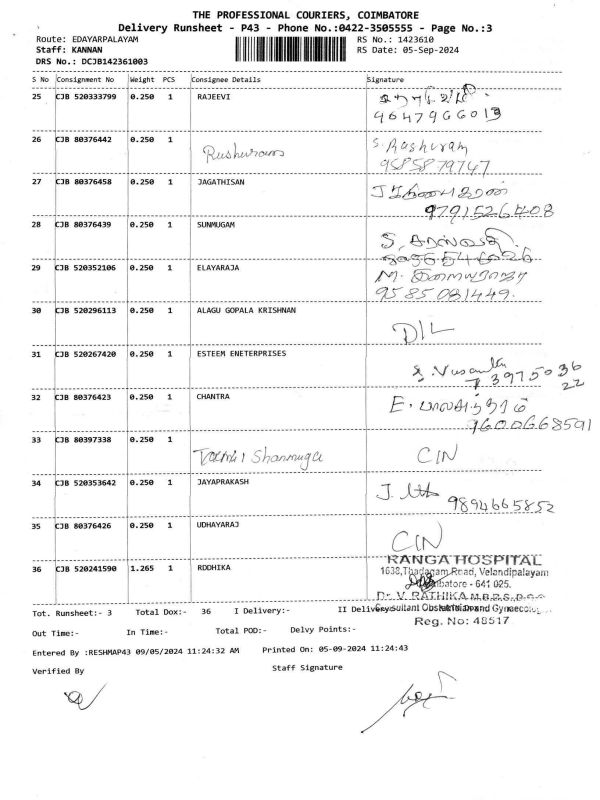 THE PROFESSIONAL COURIERS, COIMBATORE
Delivery Runsheet - P43 - Phone No.:0422-3505555 - Page No.:3
Route: EDAYARPALAYAM RS No.: 1423610
Staff: KANNAN RS Date: 05-Sep-2024
DRS No.: DCJB142361003
S No Consignment No Weight PCS Consignee Details Signature
25 CJB 520333799 0.250 1 RAJEEVI
26 CJB 80376442 0.250 1 S. Rashuram
9585879747
27 CJB 80376458 0.250 1 JAGATHISAN
9791526408
28 CJB 80376439 0.250 1 SUNMUGAM
29 CJB 520352106 0.250 1 ELAYARAJA M. இளையராஜா
9585081449.
30 CJB 520296113 0.250 1 ALAGU GOPALA KRISHNAN D/L
31 CJB 520267420 0.250 1 ESTEEM ENETERPRISES
32 CJB 80376423 0.250 1 CHANTRA E.
9600668591
33 CJB 80397338 0.250 1 Shanmuga C/N
34 CJB 520353642 0.250 1 JAYAPRAKASH J.
9894665852
35 CJB 80376426 0.250 1 UDHAYARAJ C/N
36 CJB 520241590 1.265 1 RDDHIKA RANGA HOSPITAL
1638,Thadagam Road, Velandipalayam
641 025.
Dr. V. RATHIKA M.B.B.S.,D.G.O.
Tot. Runsheet:- 3 Total Dox:- 36 I Delivery:- II Delivery
and Gynaecolo
Reg. No: 48517
Out Time:- In Time:- Total POD:- Delvy Points:-
Entered By :RESHMAP43 09/05/2024 11:24:32 AM Printed On: 05-09-2024 11:24:43
Verified By Staff Signature